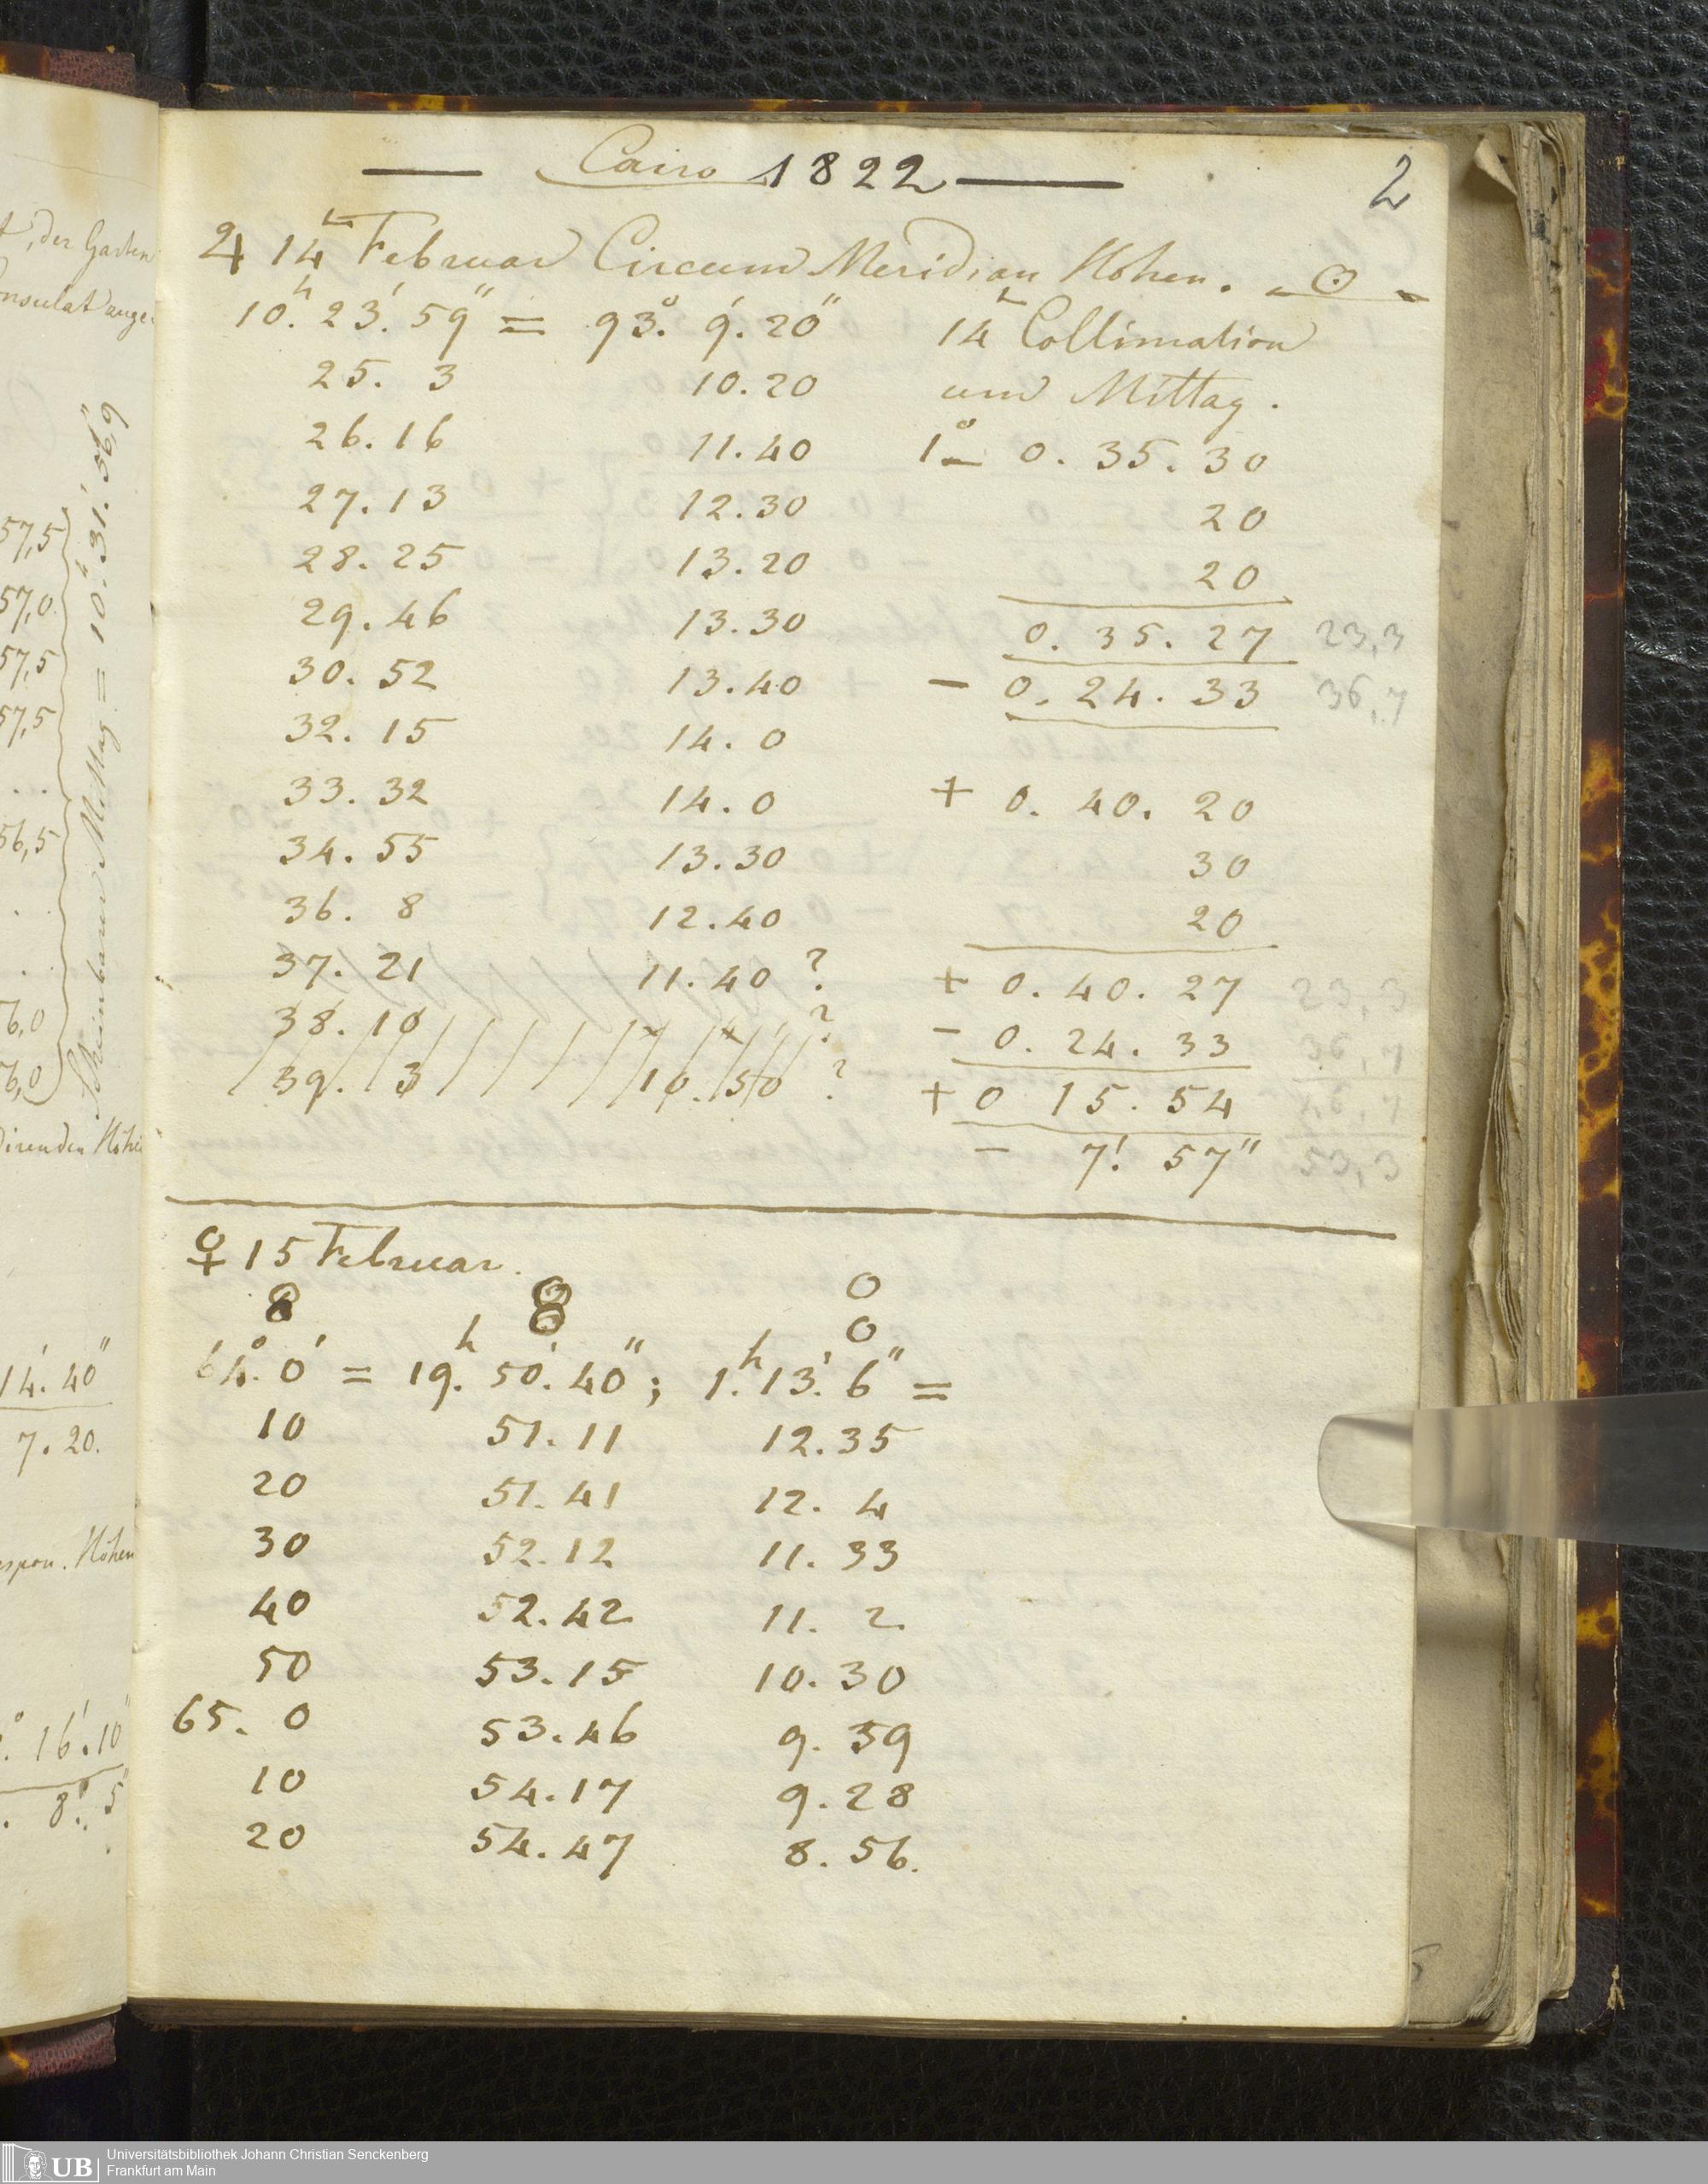 Cairo 1822
2
♃ 14t Februar Circum Meridian Höhen. ☉
10h. 23'. 59" = 93°. 9'. 20"
25. 3 10.20
26.16 11.40
27.13 12.30
28.25 13.20
29.46 13.30
30.52 13.40
32.15 14.0
33.32 14.0
34.55 13.30
36. 8 12.40
37.21 11.40 ?
38.10 ?
39. 3 10.50 ?
14t Collimation
um Mittag.
1° – 0. 35. 30
20
20
0. 35. 27 23,3
– 0. 24. 33 36,7
+ 0. 40. 20
30
20
+ 0. 40. 27 23,3
– 0. 24. 33 36,7
+ 0 15. 54
– 7! 57" 53,3
♀ 15 Februar.
64°. 0' = 19h. 50'. 40"; 1h. 13'. 6" =
10 51.11 12.35
20 51.41 12. 4
30 52.12 11. 33
40 52.42 11. 2.
50 53.15 10.30
65. 0 53.46 9. 59
10 54.17 9.28
20 54.47 8.56.
der Garten
57,5
57,0
57,5
57,5
56,5
Mittag = 10h. 31'. 56",9
14'. 40"
7. 20.
Höhen
16'. 10"
8'. 5"
UB
Universitätsbibliothek Johann Christian Senckenberg
Frankfurt am Main